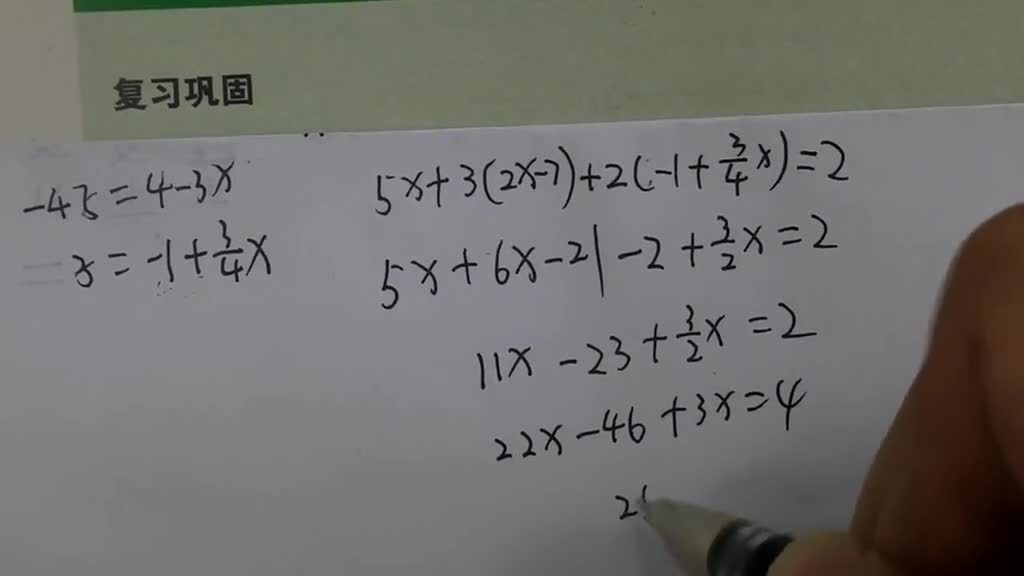 复习巩固
-4z=4-3x
z=-1+3/4x
5x+3(2x-7)+2(-1+3/4x)=2
5x+6x-21-2+3/2x=2
11x-23+3/2x=2
22x-46+3x=4
2